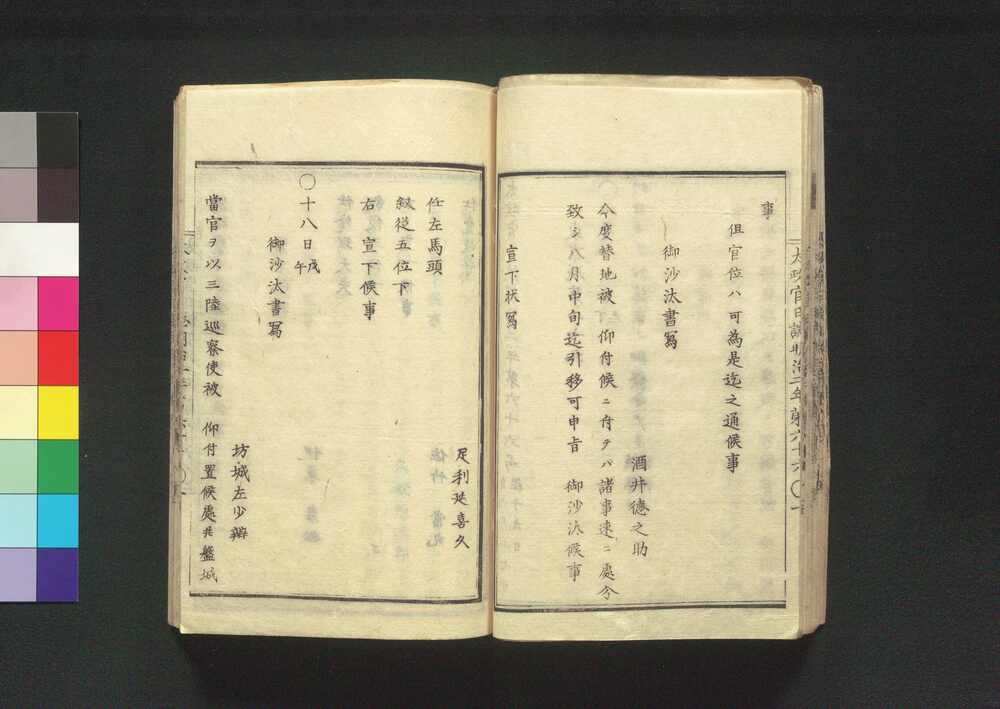 事
但官位ハ可為是迄之通候事
御沙汰書寫
酒井德之助
今度替地被　仰付候ニ付テハ諸事速ニ處分
致シ八月中旬迄引移可申旨　御沙汰候事
宣下状寫
足利延喜久
任左馬頭
敍從五位下
右宣下候事
○十八日戊午
御沙汰書寫
坊城左少辨
當官ヲ以三陸巡察使被　仰付置候處共盤城
太政官日誌明治二年第六十六